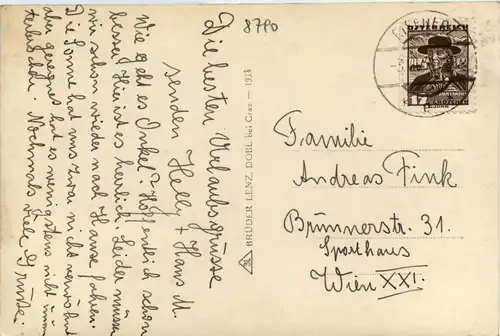 8790
Die besten Urlaubsgrüsse
senden Helly + Hans M.
Wie geht es Onkel? Hoffentlich schon
besser. Hier ist es herrlich. Leider müssen
wir schon wieder nach Hause fahren.
Die Sonne hat uns zwar nicht verwöhnt
aber geregnet hat es wenigstens nicht
Nochmals viele Grüsse.
BRÜDER LENZ, DOBL bei Graz — 193
ÖSTERREICH
12
Familie
Andreas Fink
Brünnerstr. 31.
Sporthaus
Wien XXI.